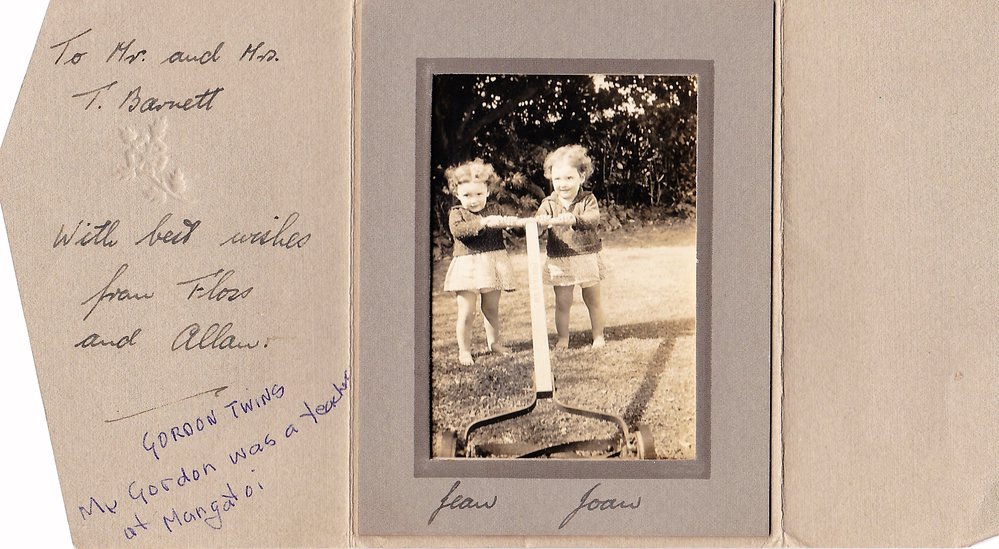 To Mr. and Mrs.
T. Barnett
With best wishes
from Floss
and Allan.
GORDON TWINS
Mr Gordon was a teacher
at Mangatoi
Jean Joan